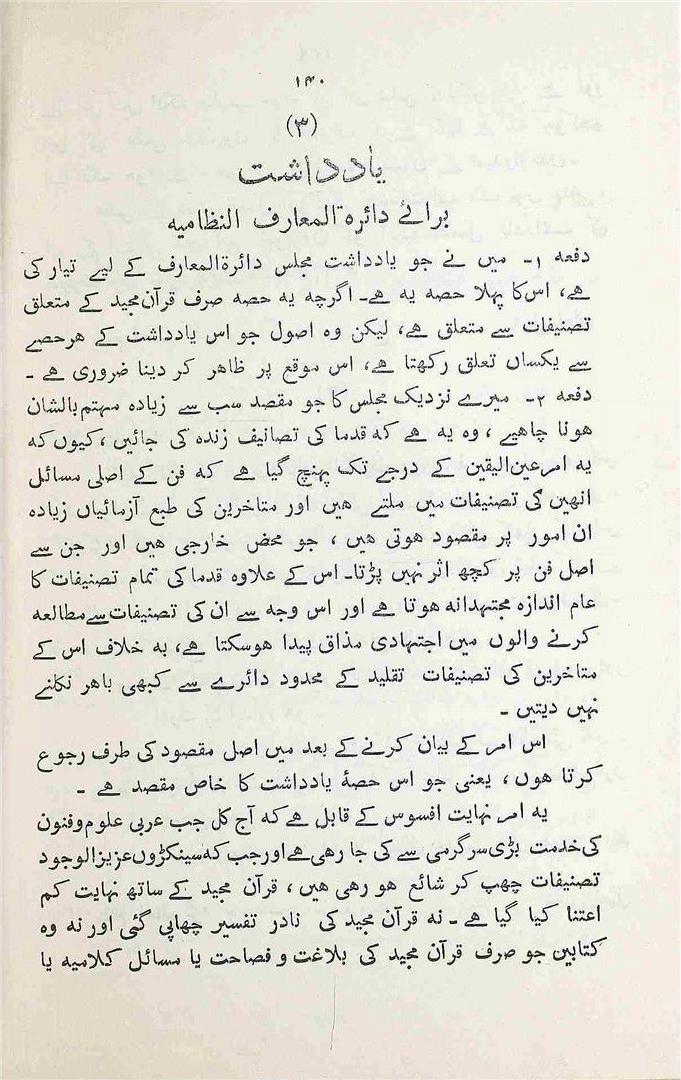 ۱۴۰
(۳)
یادداشت
برائے دائرۃ المعارف النظامیہ
دفعہ ۱۔ میں نے جو یادداشت مجلس دائرۃ المعارف کے لیے تیار کی
ہے، اس کا پہلا حصہ یہ ہے۔ اگرچہ یہ حصہ صرف قرآن مجید کے متعلق
تصنیفات سے متعلق ہے، لیکن وہ اصول جو اس یادداشت کے ہر حصے
سے یکساں تعلق رکھتا ہے، اس موقع پر ظاہر کر دینا ضروری ہے ۔
دفعہ ۲۔ میرے نزدیک مجلس کا جو مقصد سب سے زیادہ مہتم بالشان
ہونا چاہیے ، وہ یہ ہے کہ قدما کی تصانیف زندہ کی جائیں ، کیوں کہ
یہ امر عین الیقین کے درجے تک پہنچ گیا ہے کہ فن کے اصلی مسائل
انھیں کی تصنیفات میں ملتے ہیں اور متاخرین کی طبع آزمائیاں زیادہ
ان امور پر مقصود ہوتی ہیں ، جو محض خارجی ہیں اور جن سے
اصل فن پر کچھ اثر نہیں پڑتا۔ اس کے علاوہ قدما کی تمام تصنیفات کا
عام اندازہ مجتہدانہ ہوتا ہے اور اس وجہ سے ان کی تصنیفات سے مطالعہ
کرنے والوں میں اجتہادی مذاق پیدا ہوسکتا ہے، بہ خلاف اس کے
متاخرین کی تصنیفات تقلید کے محدود دائرے سے کبھی باہر نکلنے
نہیں دیتیں ۔
اس امر کے بیان کرنے کے بعد میں اصل مقصود کی طرف رجوع
کرتا ہوں ، یعنی جو اس حصۂ یادداشت کا خاص مقصد ہے ۔
یہ امر نہایت افسوس کے قابل ہے کہ آج کل جب عربی علوم و فنون
کی خدمت بڑی سرگرمی سے کی جا رہی ہے اور جب کہ سینکڑوں عزیز الوجود
تصنیفات چھپ کر شائع ہو رہی ہیں ، قرآن مجید کے ساتھ نہایت کم
اعتنا کیا گیا ہے ۔ نہ قرآن مجید کی نادر تفسیر چھاپی گئی اور نہ وہ
کتابیں جو صرف قرآن مجید کی بلاغت و فصاحت یا مسائل کلامیہ یا